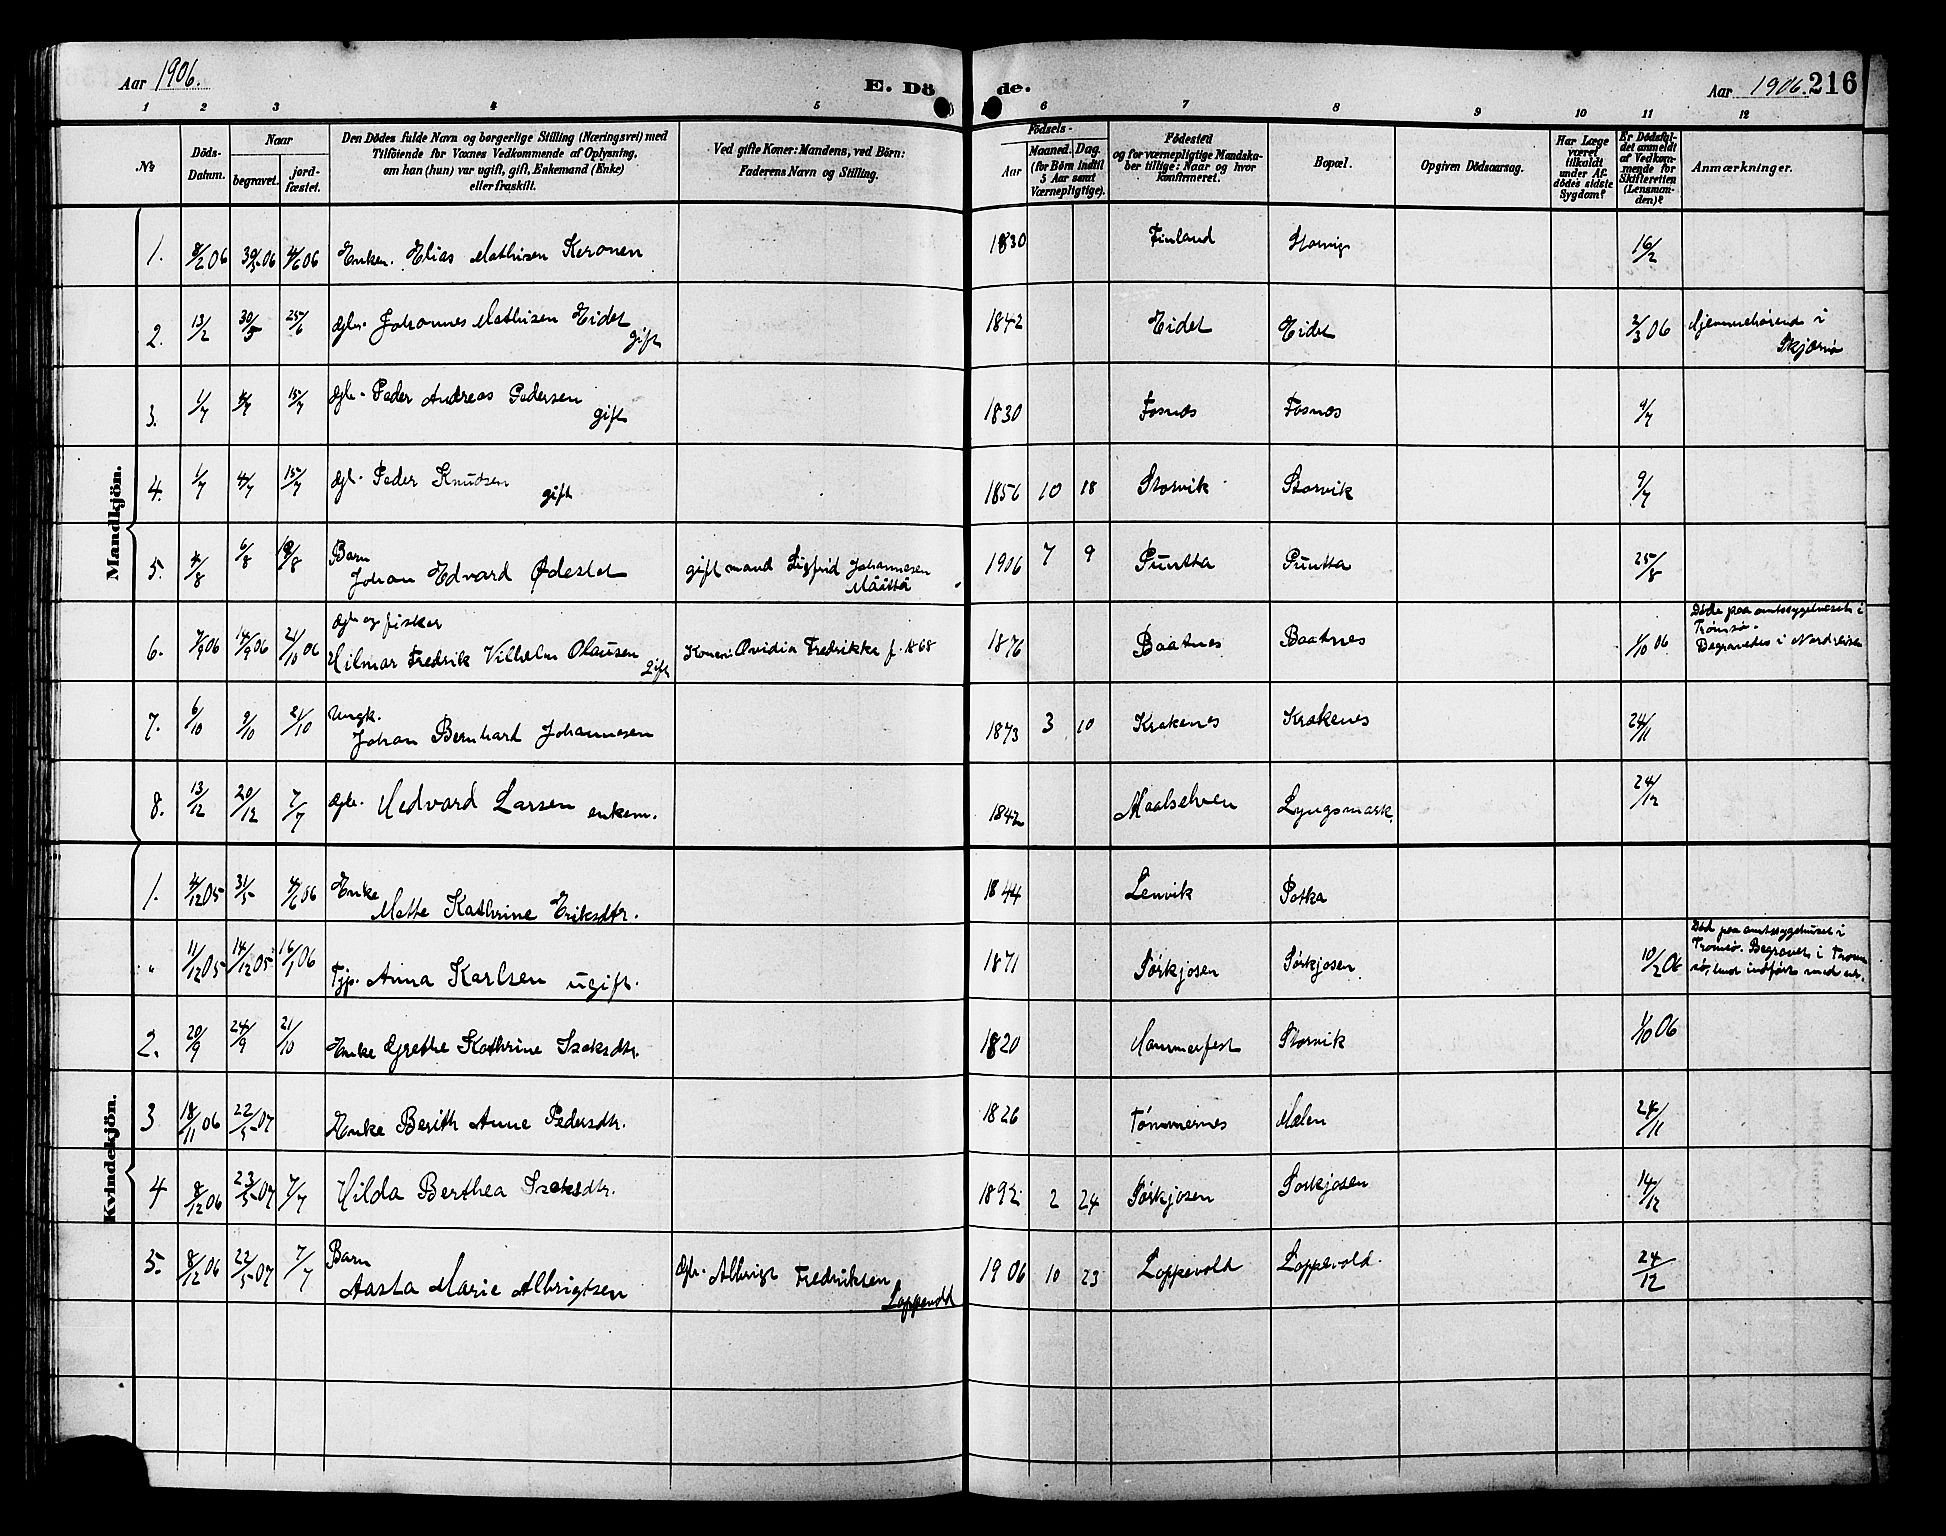 Aar 1906.
E. Döde.
Aar 1906. 216
1 2 3 4 5 6 7 8 9 10 11 12
No
Döds-Datum.
Naar
begravet.
jord-fæstet.
Den Dödes fulde Navn og borgerlige Stilling (Næringsvei) med
Tilföiende for Voxnes Vedkommende af Oplysning,
om han (hun) var ugift, gift, Enkemand (Enke)
eller fraskilt.
Ved gifte Koner: Mandens, ved Börn:
Faderens Navn og Stilling.
Födsels-
Aar
Maaned. Dag.
(for Börn indtil
5 Aar samt
Værnepligtige).
Födested
og for værnepligtige Mandska-
ber tillige: Naar og hvor
konfirmeret.
Bopæl.
Opgiven Dödsaarsag.
Har Læge
været
tilkaldt
under Af-
dödes sidste
Sygdom?
Er Dödsfal-
det anmeldt
af Vedkom-
mende for
Skifteretten
(Lensman-
den)?
Anmærkninger.
Mandkjön.
1. 8/2 06 30/5 06 4/6 06 Enkem. Elias Mathisen Keronen 1830 Finland Storvig 16/2
2. 13/2 30/5 25/6 Gbr. Johannes Mathisen Eidet gift 1842 Eidet Eidet 2/3 06 Hjemmehörend i
Skjervö
3. 1/7 4/7 15/7 Gbr. Peder Andreas Pedersen gift 1830 Fosnes Fosnes 9/7
4. 1/7 4/7 15/7 Gbr. Peder Knudsen gift 1856 10 18 Storvik Storvik 9/7
5. 4/8 6/8 19/8 Barn
Johan Edvard Ødeslet gift mand Sigfrid Johannesen
Määttä 1906 7 9 Puntta Puntta 25/8
6. 7/9 06 14/9 06 21/10 06 Gbr og fisker
Hilmar Fredrik Vilhelm Olausen Gift Kone: Ovidia Fredrikke f. 1868 1876 Baatnes Baatnes 1/10 06 Døde paa amtssygehuset i
Tromsø.
Begravedes i Nordreisen
7. 6/10 9/10 21/10 Ungk.
Johan Bernhard Johannesen 1873 3 10 Krakenes Krakenes 24/11
8. 13/12 20/12 7/7 Gbr. Hedvard Larsen enkem. 1842 Maalselven Lyngsmark. 24/12
Kvindekjön.
1. 4/12 05 31/5 4/6 06 Enke
Mette Kathrine Eriksdtr. 1844 Lenvik Potka
" 11/12 05 14/12 05 16/1 06 Tjp. Anna Karlsen ugift. 1871 Sørkjosen Sørkjosen 10/2 06 Død paa amtssygehuset i
Tromsø. Begravet i Trom
sø,
2. 20/9 24/9 21/10 Enke Grethe Kathrine Isaksdtr. 1820 Hammerfest Storvik 1/10 06
3 18/11 06 22/5 07 Enke Berith Anne Pedersdtr. 1826 Tømmernes Molen 24/11
4 8/12 06 23/5 07 7/7 Hilda Berthea Isaksdtr. 1892 2 24 Sørkjosen Sørkjosen 14/12
5. 8/12 06 22/5 07 7/7 Barn
Aasta Marie Albrigtsen Gbr. Albrigt Fredriksen
Loppevold 1906 10 23 Loppevold Loppevold. 24/12